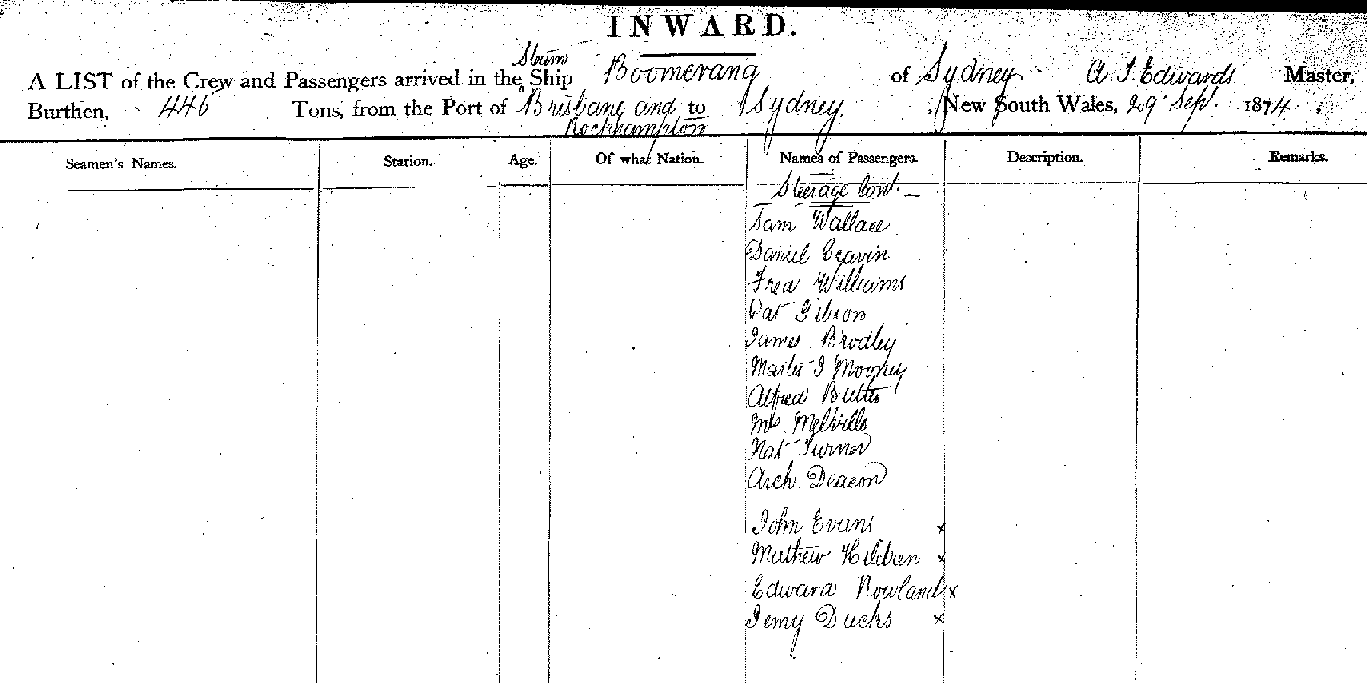 INWARD.
Steam
A LIST of the Crew and Passengers arrived in the Ship Boomerang of Sydney A Edwards Master,
Burthen, 446 Tons, from the Port of Brisbane and to Sydney. New South Wales, 29 Sept. 1874
Rockhampton
Seamen's Names. Station. Age. Of what Nation. Names of Passengers. Description. Remarks.
Steerage Cont.
Sam Wallace
Daniel
Fred Williams
Pat Gibson
James Brodley
Master J Mooney
Alfred
Mrs Melville
Nat Turner
Arch Deacon
John Evans x
Mathew x
Edward Rowland x
Jemy Ducks x